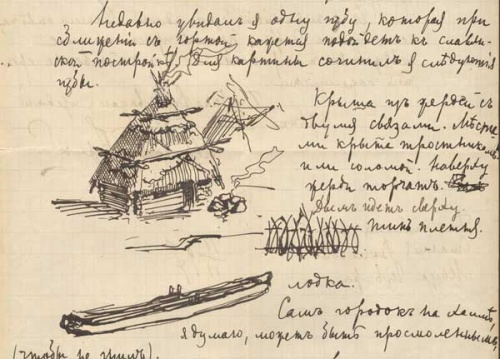 Недавно увидалъ я одну избу, которая при
сближеніи съ юртой кажется подойдетъ къ славян-
ской постройкѣ. Для картины сочинилъ я слѣдующія
избы.
Крыша изъ жердей съ
двумя связами. Мѣста-
ми крыта тростникомъ
или соломой. Наверху
жерди торчатъ.
Дымъ идетъ сверху.
Тынъ плетня.
лодка.
Самъ городокъ на холмѣ,
я думаю, можетъ быть просмоленный
(чтобы не гнилъ).